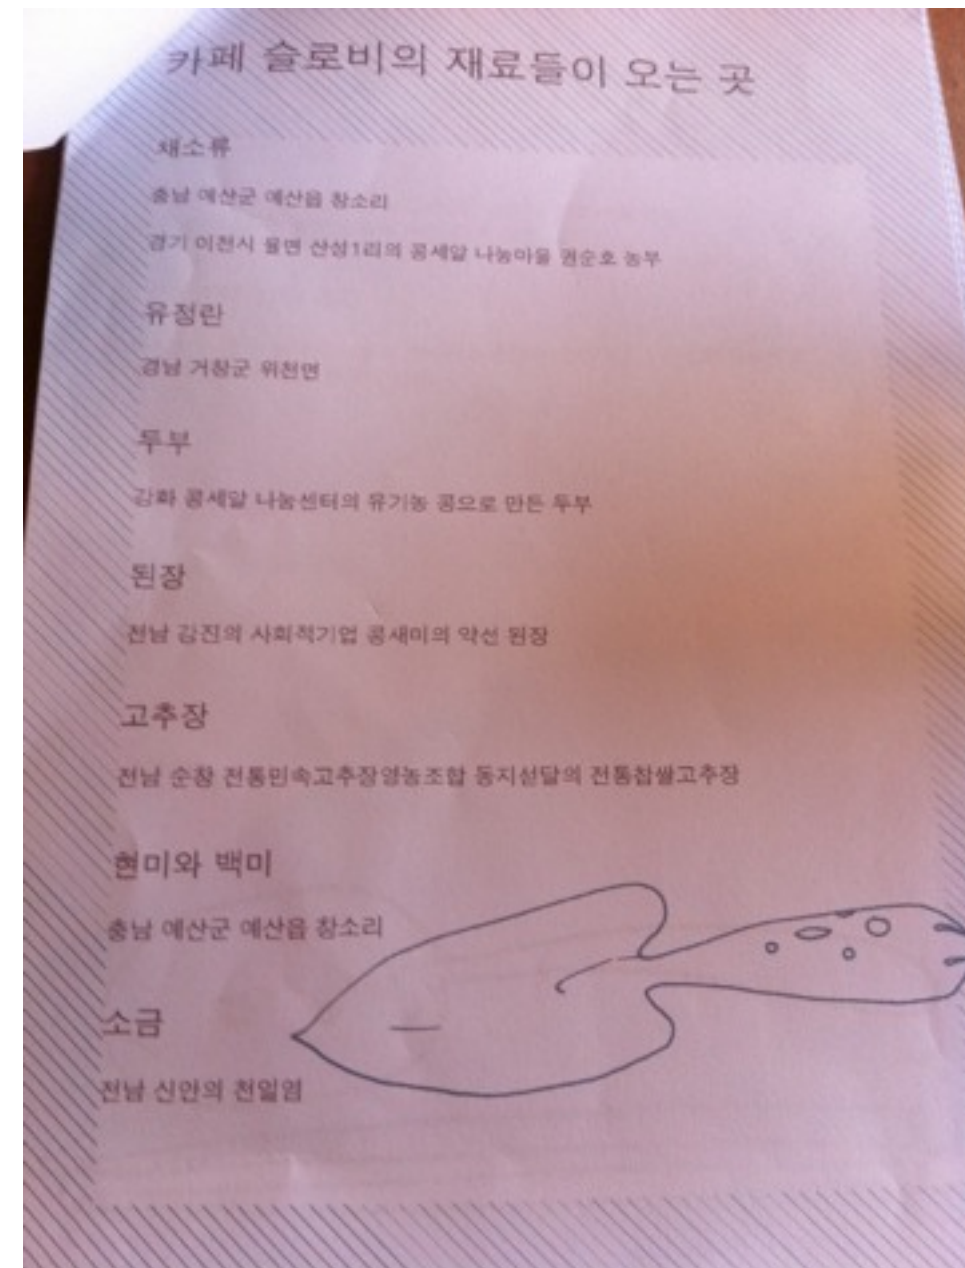 카페 슬로비의 재료들이 오는 곳
채소류
충남 예산군 예산읍 창소리
경기 이천시 율면 산성1리의 콩세알 나눔마을 권순호 농부
유정란
경남 거창군 위천면
두부
강화 콩세알 나눔센터의 유기농 콩으로 만든 두부
된장
전남 강진의 사회적기업 콩새미의 약선 된장
고추장
전남 순창 전통민속고추장영농조합 동지섣달의 전통찹쌀고추장
현미와 백미
충남 예산군 예산읍 창소리
소금
전남 신안의 천일염